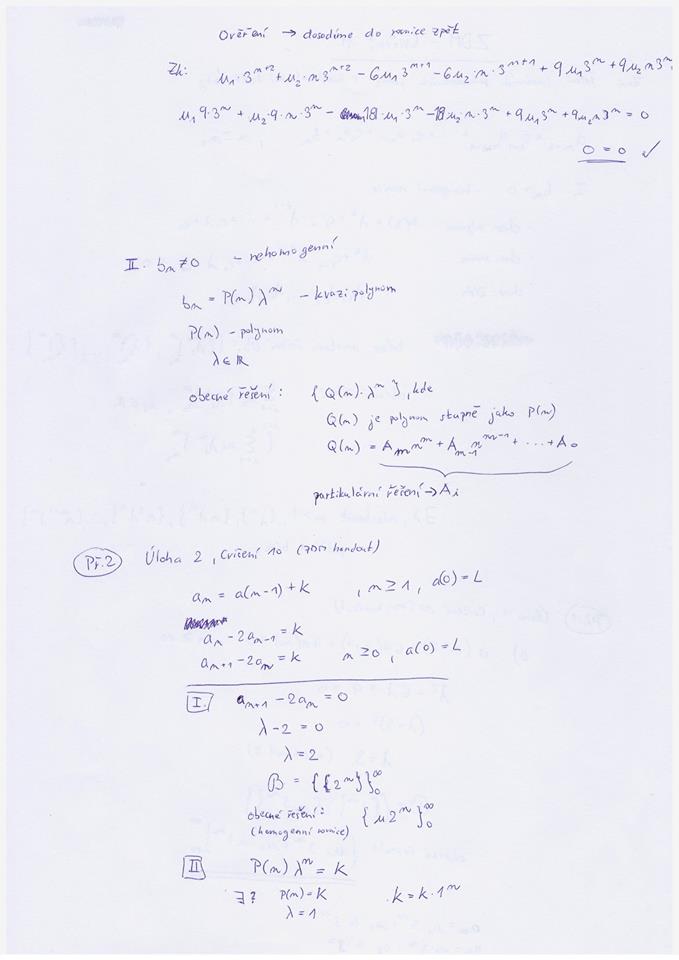 Ověření → dosadíme do rovnice zpět
Zk: μ₁·3ⁿ⁺² + μ₂·n·3ⁿ⁺² − 6μ₁3ⁿ⁺¹ − 6μ₂·n·3ⁿ⁺¹ + 9μ₁3ⁿ + 9μ₂n3ⁿ
μ₁9·3ⁿ + μ₂·9·n·3ⁿ − 18·μ₁·3ⁿ − 18μ₂n·3ⁿ + 9μ₁3ⁿ + 9μ₂n3ⁿ = 0
0 = 0 ✓
II. bₙ ≠ 0 – nehomogenní
bₙ = P(n) λⁿ – kvazipolynom
P(n) – polynom
λ ∈ ℝ
obecné řešení: {Q(n)·λⁿ}, kde
Q(n) je polynom stupně jako P(n)
Q(n) = Aₘnᵐ + Aₘ₋₁nᵐ⁻¹ + ... + A₀
partikulární řešení → Aᵢ
Př.2 Úloha 2, Cvičení 10 (ZDM handout)
aₙ = a(n−1) + K , n ≥ 1, a(0) = L
aₙ − 2aₙ₋₁ = K
aₙ₊₁ − 2aₙ = K n ≥ 0, a(0) = L
I. aₙ₊₁ − 2aₙ = 0
λ − 2 = 0
λ = 2
B = {{2ⁿ}}₀^∞
obecné řešení: {μ2ⁿ}₀^∞
(homogenní rovnice)
II P(n) λⁿ = K
∃? P(n) = K k = k·1ⁿ
λ = 1